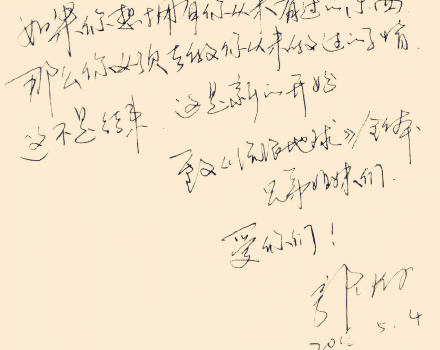 如果你想拥有你从未有过的东西
那么你必须去做你从未做过的事情
这不是结束 这是新的开始
致《流浪地球》全体
兄弟姐妹们.
爱你们!
5.4